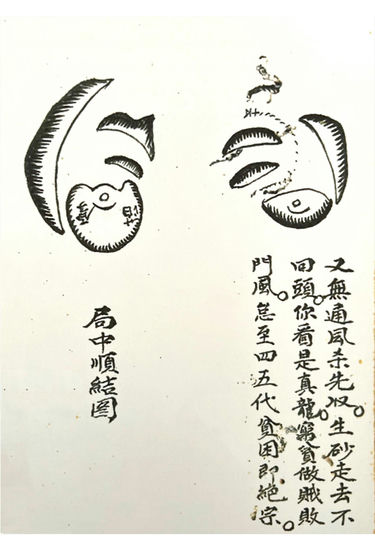 又無通风杀先収。生砂走去不
回頭。你看是真龍。窮貧做贼敗
門風。怠至四五代貧困即絶宗。
局中順結图